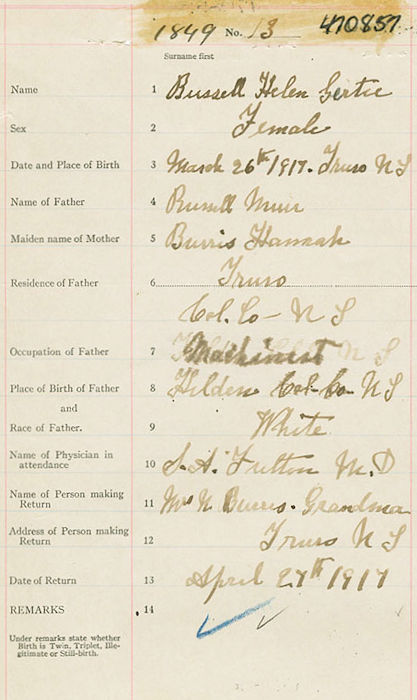 1849 No. 13 470857
Surname first
Name 1 Russell Helen Gertie
Sex 2 Female
Date and Place of Birth 3 March 26th 1917. Truro N S
Name of Father 4 Russell Muir
Maiden name of Mother 5 Burris Hannah
Residence of Father 6 Truro
Col. Co - N S
Occupation of Father 7 Machinist N S
Place of Birth of Father 8 Hilden Col. Co N S
and
Race of Father. 9 White
Name of Physician in
attendance 10 S. A. Fulton M.D
Name of Person making
Return 11 Mrs N Burris. Grandma
Address of Person making
Return 12 Truro N S
Date of Return 13 April 27th 1917
REMARKS 14
Under remarks state whether
Birth is Twin, Triplet, Ille-
gitimate or Still-birth.